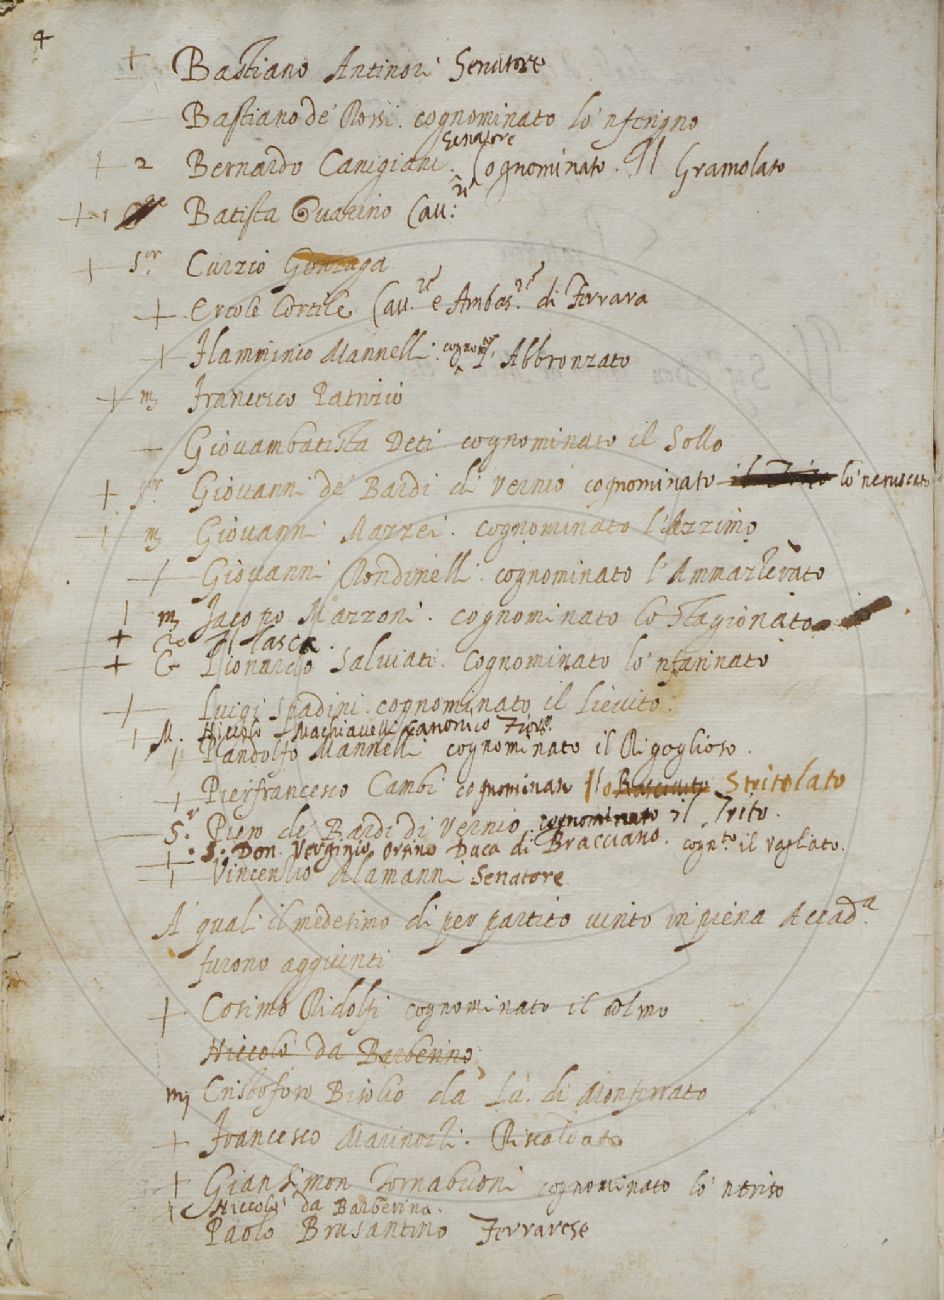 4
+ Bastiano Antinori Senatore
Bastiano de' Rossi. cognominato lo 'nferigno
Senatore
+ 2 Bernardo Canigiani. Cognominato. Il Gramolato
+ 1 Batista Guarino Cav:re
+ S.or Curzio Gonzaga
+ Ercole Cortile Cav.re e Ambas.re di Ferrara
+ Flamminio Mannelli. cognom.to l' Abbronzato
+ m Francesco Patrizio
+ Giovambatista Deti cognominato il Sollo
+ S.or Giovanni de' Bardi di Vernio cognominato il Trito lo
+ m Giovanni Mazzei. cognominato l'Azzimo
+ Giovanni Rondinelli. cognominato l'Ammazzerato
+ m Jacopo Mazzoni. cognominato lo Stagionato
+ Il Lasca.
+ C Lionardo Salviati. Cognominato lo 'nfarinato
+ Luigi Spadini. cognominato il Lievito.
+ M. Niccolò Machiavelli Canonico Fior.no
+ Pandolfo Mannelli cognominato il Rigoglioso.
+ Pierfrancesco Cambi cognominato Stritolato
S.r Piero de' Bardi di Vernio cognominato il Trito.
+ S. Don. Verginio Orsino Duca di Bracciano. cogn.to il vagliato.
+ Vincenzio Alamanni Senatore
A' quali il medesimo dì per partito vinto in piena Accad.a
furono aggiunti
+ Cosimo Ridolfi cognominato il colmo
Niccolò da Barberino
m Cristoforo da di Monferrato
+ Francesco Marinozzi. Riscaldato
+ Gian Simon Tornabuoni cognominato lo 'ntriso
+ Niccolò da Barberino.
Paolo Brusantino Ferrarese